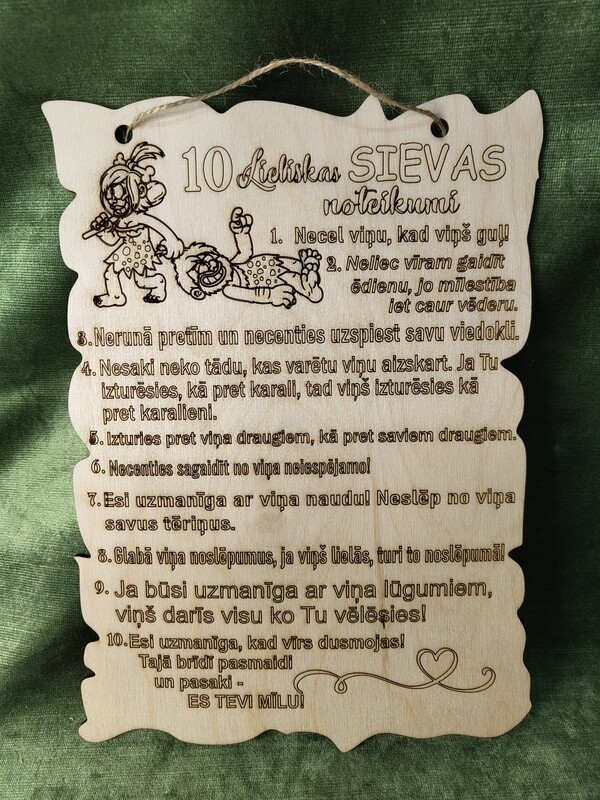 10 Lieliskas SIEVAS
noteikumi
1. Necel viņu, kad viņš guļ!
2. Neliec vīram gaidīt
ēdienu, jo mīlestība
iet caur vēderu.
3. Nerunā pretīm un necenties uzspiest savu viedokli.
4. Nesaki neko tādu, kas varētu viņu aizskart. Ja Tu
izturēsies, kā pret karali, tad viņš izturēsies kā
pret karalieni.
5. Izturies pret viņa draugiem, kā pret saviem draugiem.
6. Necenties sagaidīt no viņa neiespējamo!
7. Esi uzmanīga ar viņa naudu! Neslēp no viņa
savus tēriņus.
8. Glabā viņa noslēpumus, ja viņš lielās, turi to noslēpumā!
9. Ja būsi uzmanīga ar viņa lūgumiem,
viņš darīs visu ko Tu vēlēsies!
10. Esi uzmanīga, kad vīrs dusmojas!
Tajā brīdī pasmaidi
un pasaki -
ES TEVI MĪLU!